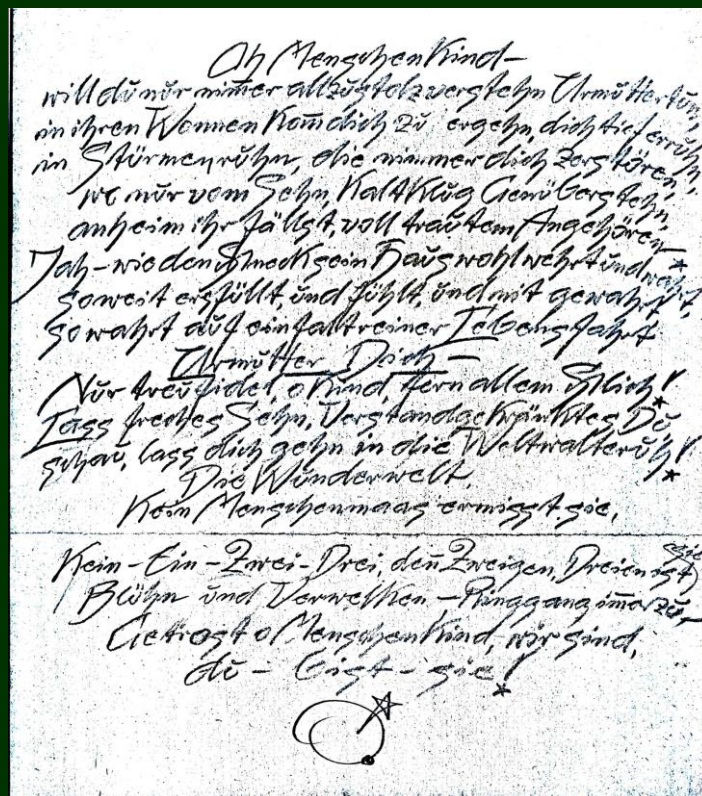 Oh Menschenkind –
will dŭ nŭr nim̄er allzŭstolz verstehn Urmŭttertŭn,
in ihren Wonnen kom̄ dich zŭ ergehn, dich tief errŭhn,
in Stürmen rŭhn, die nimmer dich zerstören,
wo nŭr vom Sehn, Kaltklŭg Genüberstehn,
anheim ihr fällst, voll trautem Angehören
Jah – wie den Schneck sein Haŭs wohl wehrt ŭnd wahrt
soweit erfüllt, ŭnd fühlt, ŭnd mit gewahrt,
so wahrt aŭf einfaltreiner Lebensfahrt
Urmŭtter Dich –
Nŭr treŭfidel, o Kind, fern allem Schlich!
Lass freches Sehn, Verstandgekränktes Dŭ
schaŭ, lass dich gehn in die Weltwalterŭh!
Die Wŭnderwelt,
Kein Menschenmaas ermisst sie,
Kein – Ein – Zwei – Drei, den̄ Zweigen, Dreien ist sie
Blühn ŭnd Verwelken – Ringgang im̄erzŭ,
Getrost o Menschenkind, wir sind,
dŭ – bist – sie!